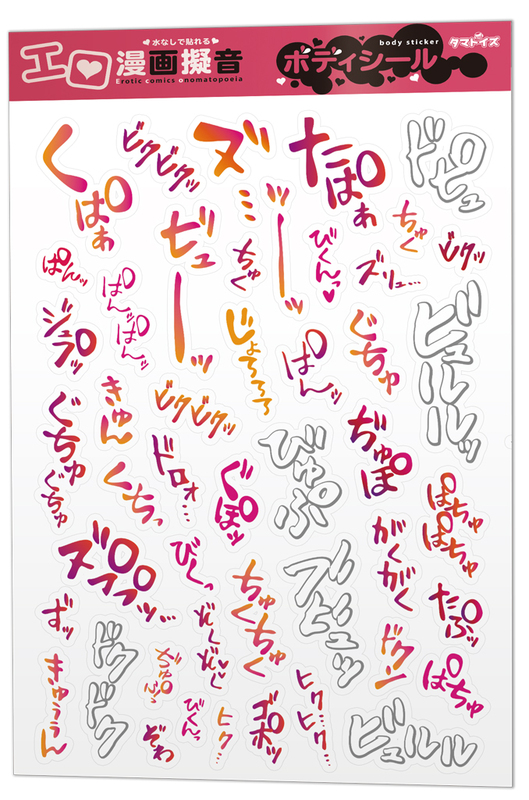 水なしで貼れる
エロ漫画擬音
Erotic comics onomatopoeia
body sticker
ボディシール
タマトイズ
くぱぁ
ビクビクッ
ズ
ミッ
たぱぁ
ドピュ
ビューーッ
ちゅく
びくんっ♥
ちゅく
ビクッ
ズリュ…
ぱんッ
ぱんッぱんッ
ジュプッ
じょろろろ
ぱんッ
ぐちゅ
ビュルルッ
ぐちゅぐちゅ
きゅん
ビクビクッ
ドロォ…
ぢゅぽ
くちっ
ぐぽッ
びゅぷ
ぱちゅぱちゅ
ズプププッ…
びくっ
ちゅくちゅく
ブビュッ
がくがく
たぷッ
ずッ
ドクドク
ぞくぞく
ドクン
ぱちゅ
きゅぅぅん
ぞわ
びくんっ
ヒク…
ゴポッ
ヒク…ヒク…
ビュルル